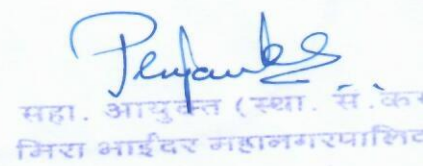 सहा. आयुक्त (स्था. सं. कर
मिरा भाईंदर महानगरपालिका